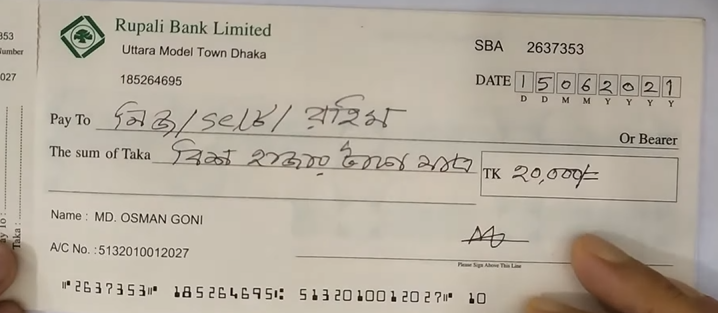 Rupali Bank Limited
Uttara Model Town Dhaka
185264695
SBA 2637353
DATE 1 5 0 6 2 0 2 1
D D M M Y Y Y Y
Pay To নিজ/self/রহিম
Or Bearer
The sum of Taka বিশ হাজার টাকা মাত্র
TK 20,000/=
Name : MD. OSMAN GONI
A/C No. :5132010012027
Please Sign Above This Line
⑈2637353⑈ 185264695⑆ 5132010012027⑈ 10
353
Number
027
ay To :
Taka :